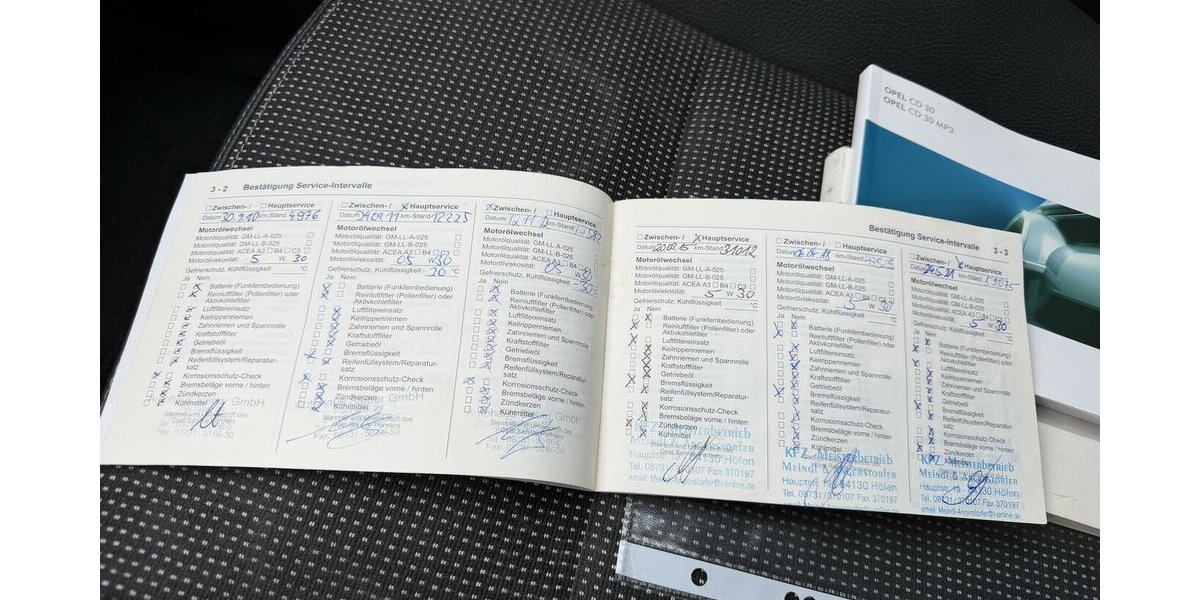 OPEL CD 30
OPEL CD 30 MP3
3 - 2 Bestätigung Service-Intervalle
Zwischen- / Hauptservice
Datum 30.9.10 km-Stand 4976
Motorölwechsel
Motorölqualität: GM-LL-A-025
Motorölqualität: GM-LL-B-025
Motorölqualität: ACEA A3 B4 C3
Motorölviskosität: 5 W 30
Gefrierschutz, Kühlflüssigkeit °C
Ja Nein
Batterie (Funkfernbedienung)
Reinluftfilter (Pollenfilter) oder
Aktivkohlefilter
Luftfiltereinsatz
Keilrippenriemen
Zahnriemen und Spannrolle
Kraftstofffilter
Getriebeöl
Bremsflüssigkeit
Reifenfüllsystem/Reparatur-
satz
Korrosionsschutz-Check
Bremsbeläge vorne / hinten
Zündkerzen
Kühlmittel
GmbH
Zwischen- / Hauptservice
km-Stand 12225
Motorölwechsel
Motorölqualität: GM-LL-A-025
Motorölqualität: GM-LL-B-025
Motorölqualität: ACEA A3 B4 C3
Motorölviskosität: 05 W 30
Gefrierschutz, Kühlflüssigkeit -30 °C
Ja Nein
Batterie (Funkfernbedienung)
Reinluftfilter (Pollenfilter) oder
Aktivkohlefilter
Luftfiltereinsatz
Keilrippenriemen
Zahnriemen und Spannrolle
Kraftstofffilter
Getriebeöl
Bremsflüssigkeit
Reifenfüllsystem/Reparatur-
satz
Korrosionsschutz-Check
Bremsbeläge vorne / hinten
Zündkerzen
Kühlmittel
GmbH
Zwischen- / Hauptservice
Datum km-Stand
Motorölwechsel
Motorölqualität: GM-LL-A-025
Motorölqualität: GM-LL-B-025
Motorölqualität: ACEA A3 B4 C3
Motorölviskosität: 05 W 30
Gefrierschutz, Kühlflüssigkeit -30 °C
Ja Nein
Batterie (Funkfernbedienung)
Reinluftfilter (Pollenfilter) oder
Aktivkohlefilter
Luftfiltereinsatz
Keilrippenriemen
Zahnriemen und Spannrolle
Kraftstofffilter
Getriebeöl
Bremsflüssigkeit
Reifenfüllsystem/Reparatur-
satz
Korrosionsschutz-Check
Bremsbeläge vorne / hinten
Zündkerzen
Kühlmittel
Bestätigung Service-Intervalle 3 - 3
Zwischen- / Hauptservice
km-Stand 31012
Motorölwechsel
Motorölqualität: GM-LL-A-025
Motorölqualität: GM-LL-B-025
Motorölqualität: ACEA A3 B4 C3
Motorölviskosität: 5 W 30
Gefrierschutz, Kühlflüssigkeit °C
Ja Nein
Batterie (Funkfernbedienung)
Reinluftfilter (Pollenfilter) oder
Aktivkohlefilter
Luftfiltereinsatz
Keilrippenriemen
Zahnriemen und Spannrolle
Kraftstofffilter
Getriebeöl
Bremsflüssigkeit
Reifenfüllsystem/Reparatur-
satz
Korrosionsschutz-Check
Bremsbeläge vorne / hinten
Zündkerzen
Kühlmittel
KFZ-MEISTERBETRIEB
MEINDL & ANGERSTORFER
Zwischen- / Hauptservice
km-Stand
Motorölwechsel
Motorölqualität: GM-LL-A-025
Motorölqualität: GM-LL-B-025
Motorölqualität: ACEA A3 B4 C3
Motorölviskosität: 5 W 30
Gefrierschutz, Kühlflüssigkeit °C
Ja Nein
Batterie (Funkfernbedienung)
Reinluftfilter (Pollenfilter) oder
Aktivkohlefilter
Luftfiltereinsatz
Keilrippenriemen
Zahnriemen und Spannrolle
Kraftstofffilter
Getriebeöl
Bremsflüssigkeit
Reifenfüllsystem/Reparatur-
satz
Korrosionsschutz-Check
Bremsbeläge vorne / hinten
Zündkerzen
Kühlmittel
KFZ-MEISTERBETRIEB
MEINDL & ANGERSTORFER
Tel. 08731 / 370107 Fax 370197
Zwischen- / Hauptservice
km-Stand
Motorölwechsel
Motorölqualität: GM-LL-A-025
Motorölqualität: GM-LL-B-025
Motorölqualität: ACEA A3 B4 C3
Motorölviskosität: 5 W 30
Gefrierschutz, Kühlflüssigkeit °C
Ja Nein
Batterie (Funkfernbedienung)
Reinluftfilter (Pollenfilter) oder
Aktivkohlefilter
Luftfiltereinsatz
Keilrippenriemen
Zahnriemen und Spannrolle
Kraftstofffilter
Getriebeöl
Bremsflüssigkeit
Reifenfüllsystem/Reparatur-
satz
Korrosionsschutz-Check
Bremsbeläge vorne / hinten
Zündkerzen
Kühlmittel
KFZ-MEISTERBETRIEB